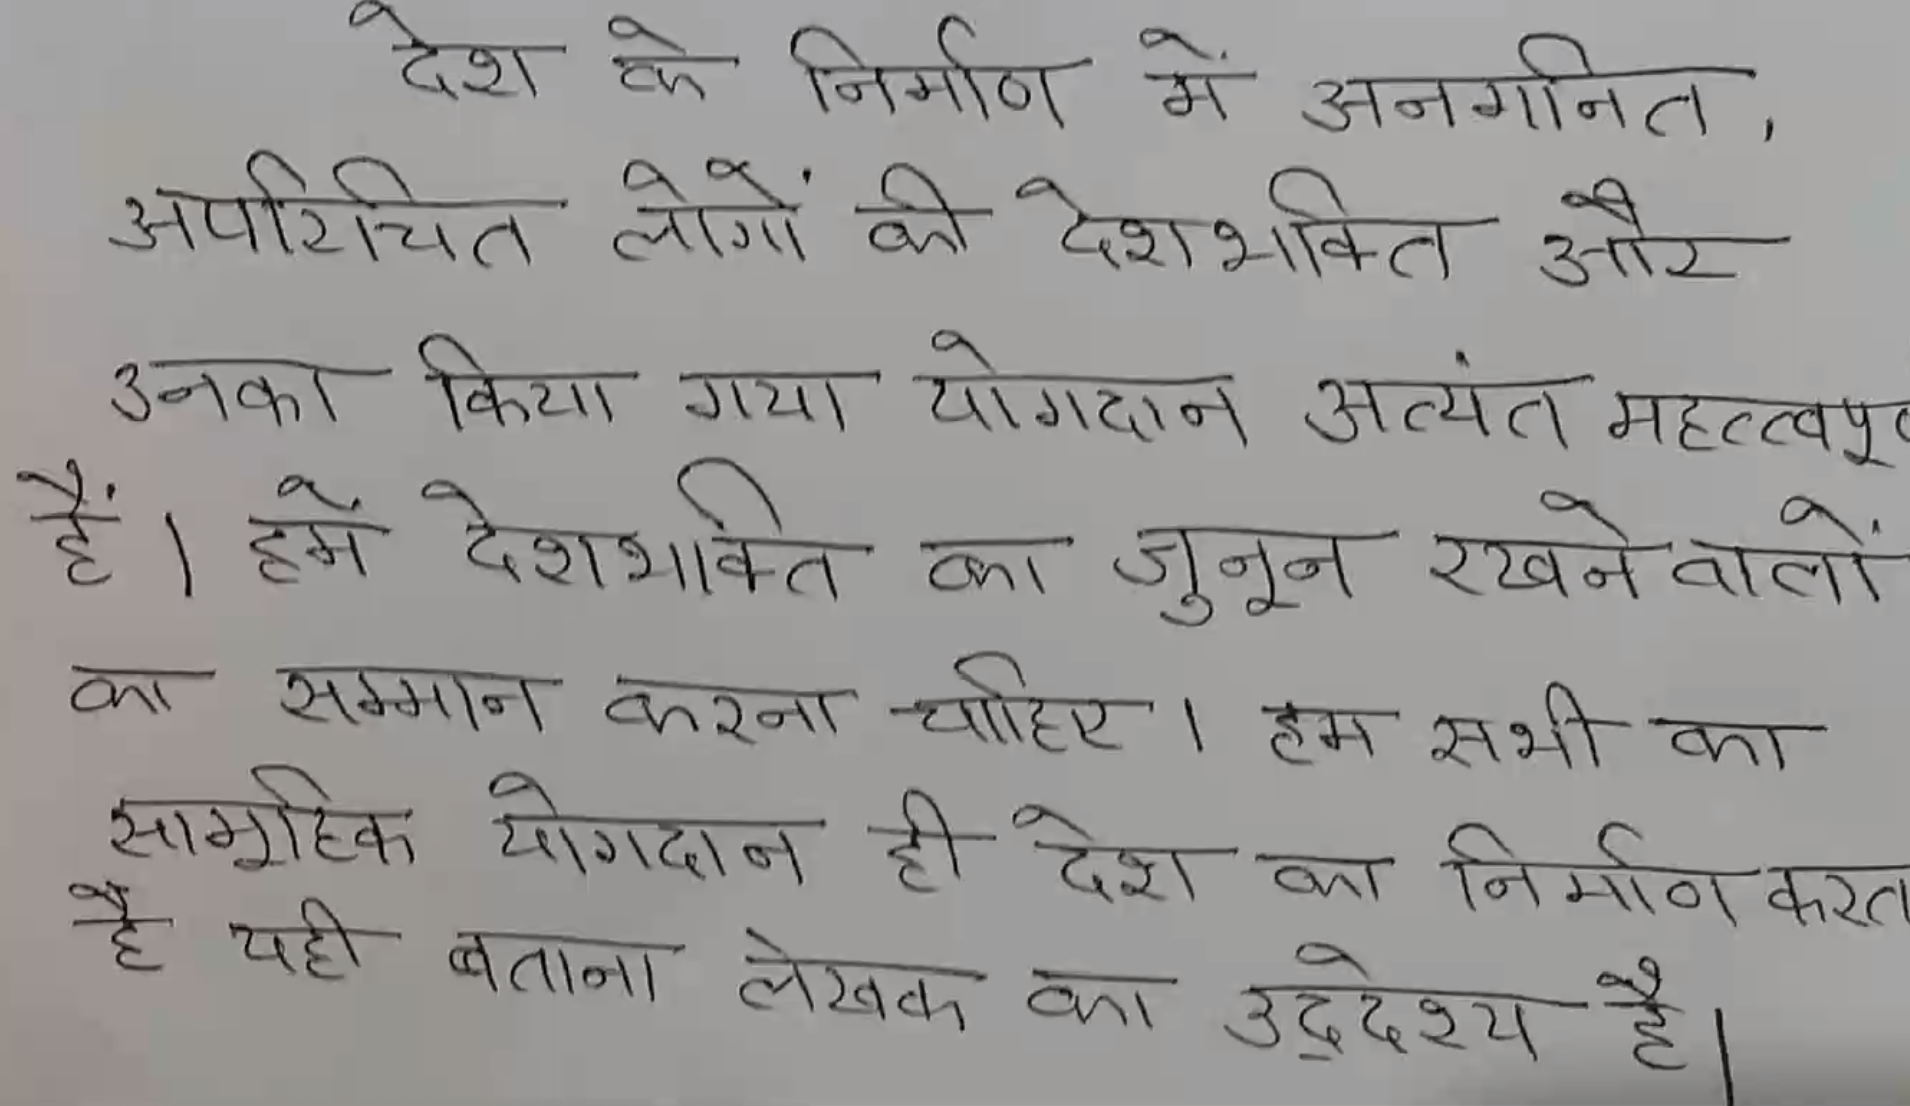 देश के निर्माण में अनगनित,
अपरिचित लोगों की देशभक्ति और
उनका किया गया योगदान अत्यंत महत्त्वपू
हैं। हमें देशभक्ति का जुनून रखने वालों
का सम्मान करना चाहिए। हम सभी का
सामूहिक योगदान ही देश का निर्माण करत
है यही बताना लेखक का उद्देश्य है।